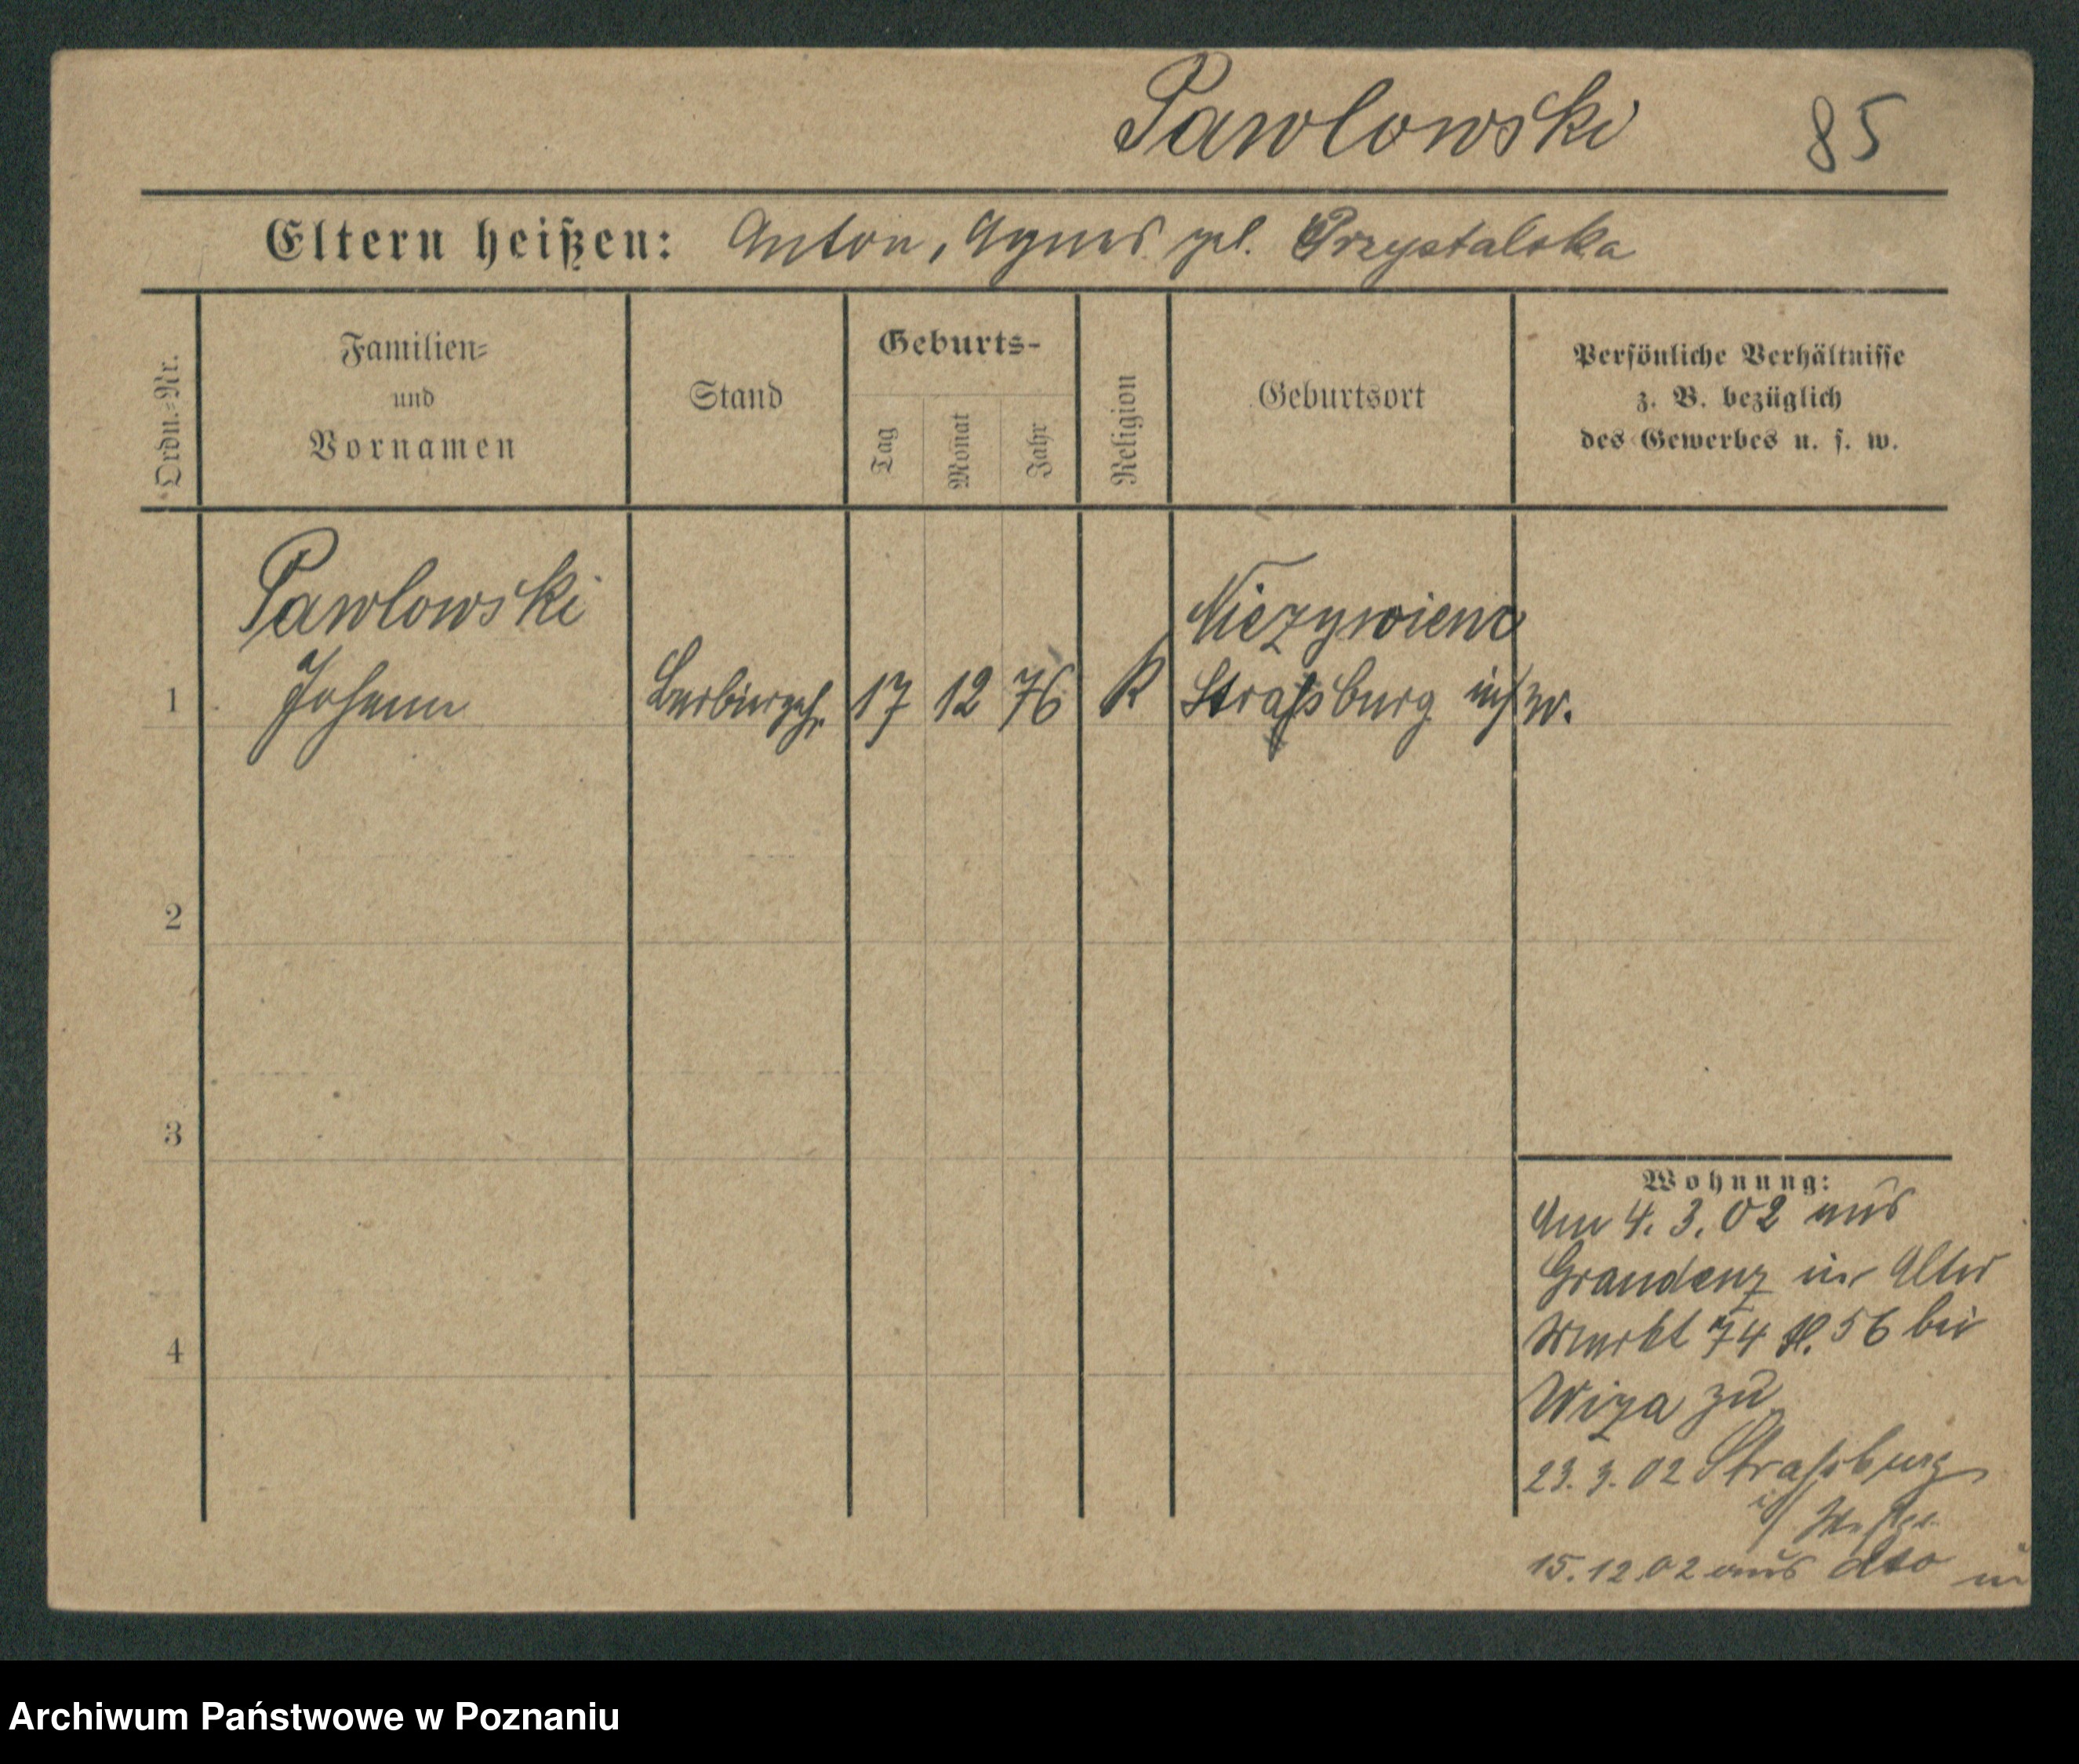 Pawlowski 85
Eltern heißen: Anton, Agnes geb. Przystalska
Ordn.-Nr.
Familien-
und
Vornamen
Stand
Geburts-
Tag
Monat
Jahr
Religion
Geburtsort
Persönliche Verhältnisse
z. B. bezüglich
des Gewerbes u. s. w.
Pawlowski
Niezywienc
1 Johann Barbiergeh. 17 12 76 K Strassburg i/W.
2
3
4
Wohnung:
Am 4. 3. 02 aus
Graudenz in Alter
Markt 74 II. 56 bei
Wiza zu
23. 3. 02 Strassburg
i/ Westpr.
15. 12. 02 aus dto in
Archiwum Państwowe w Poznaniu